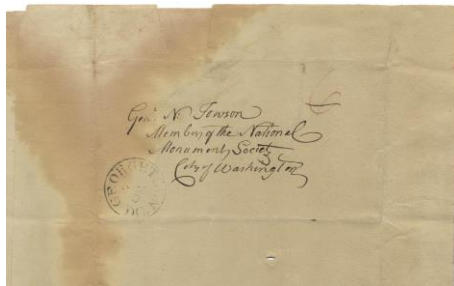 Genl. N. Towson
Member of the National
Monument Society
City of Washington
GEORGETOWN